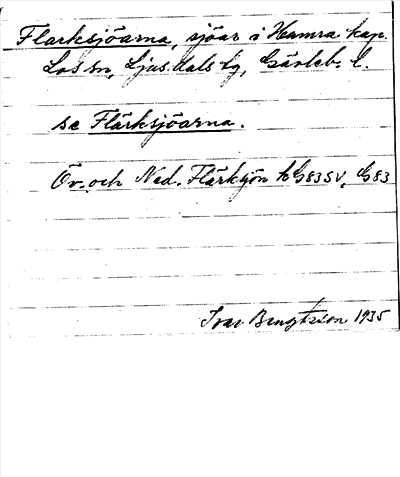 Flarksjöarna, sjöar i Hamra kap.
Los sn, Ljusdals tg, Gävleb. l.
se Flärksjöarna.
Öv. och Ned. Flärksjön kG83SV, G83
Ivar Bengtsson 1935